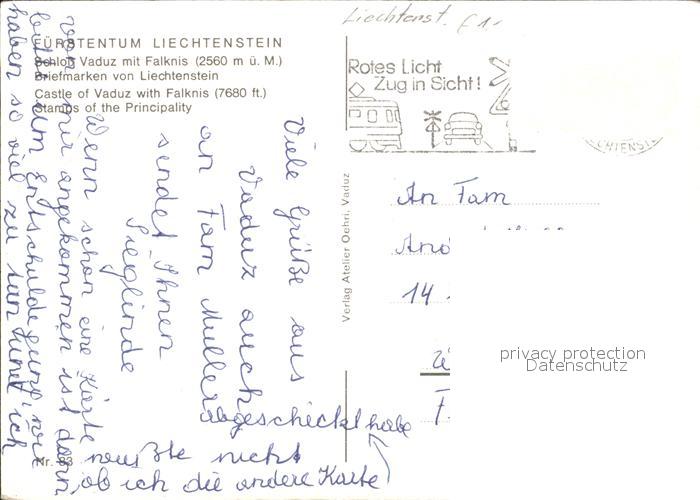 Liechtenst.
FÜRSTENTUM LIECHTENSTEIN
Schloß Vaduz mit Falknis (2560 m ü. M.)
Briefmarken von Liechtenstein
Castle of Vaduz with Falknis (7680 ft.)
Stamps of the Principality
Rotes Licht
Zug in Sicht!
Verlag Atelier Oehri, Vaduz
An Fam
14
privacy protection
Datenschutz
Viele Grüße aus
Vaduz auch
an Fam Müller
sendet Ihnen
Sieglinde
Wenn schon eine Karte
von mir angekommen ist dann
bitte um Entschuldigung, wir
haben so viel zu tun und ich
wußte nicht
ob ich die andere Karte
abgeschickt habe
Nr. 83